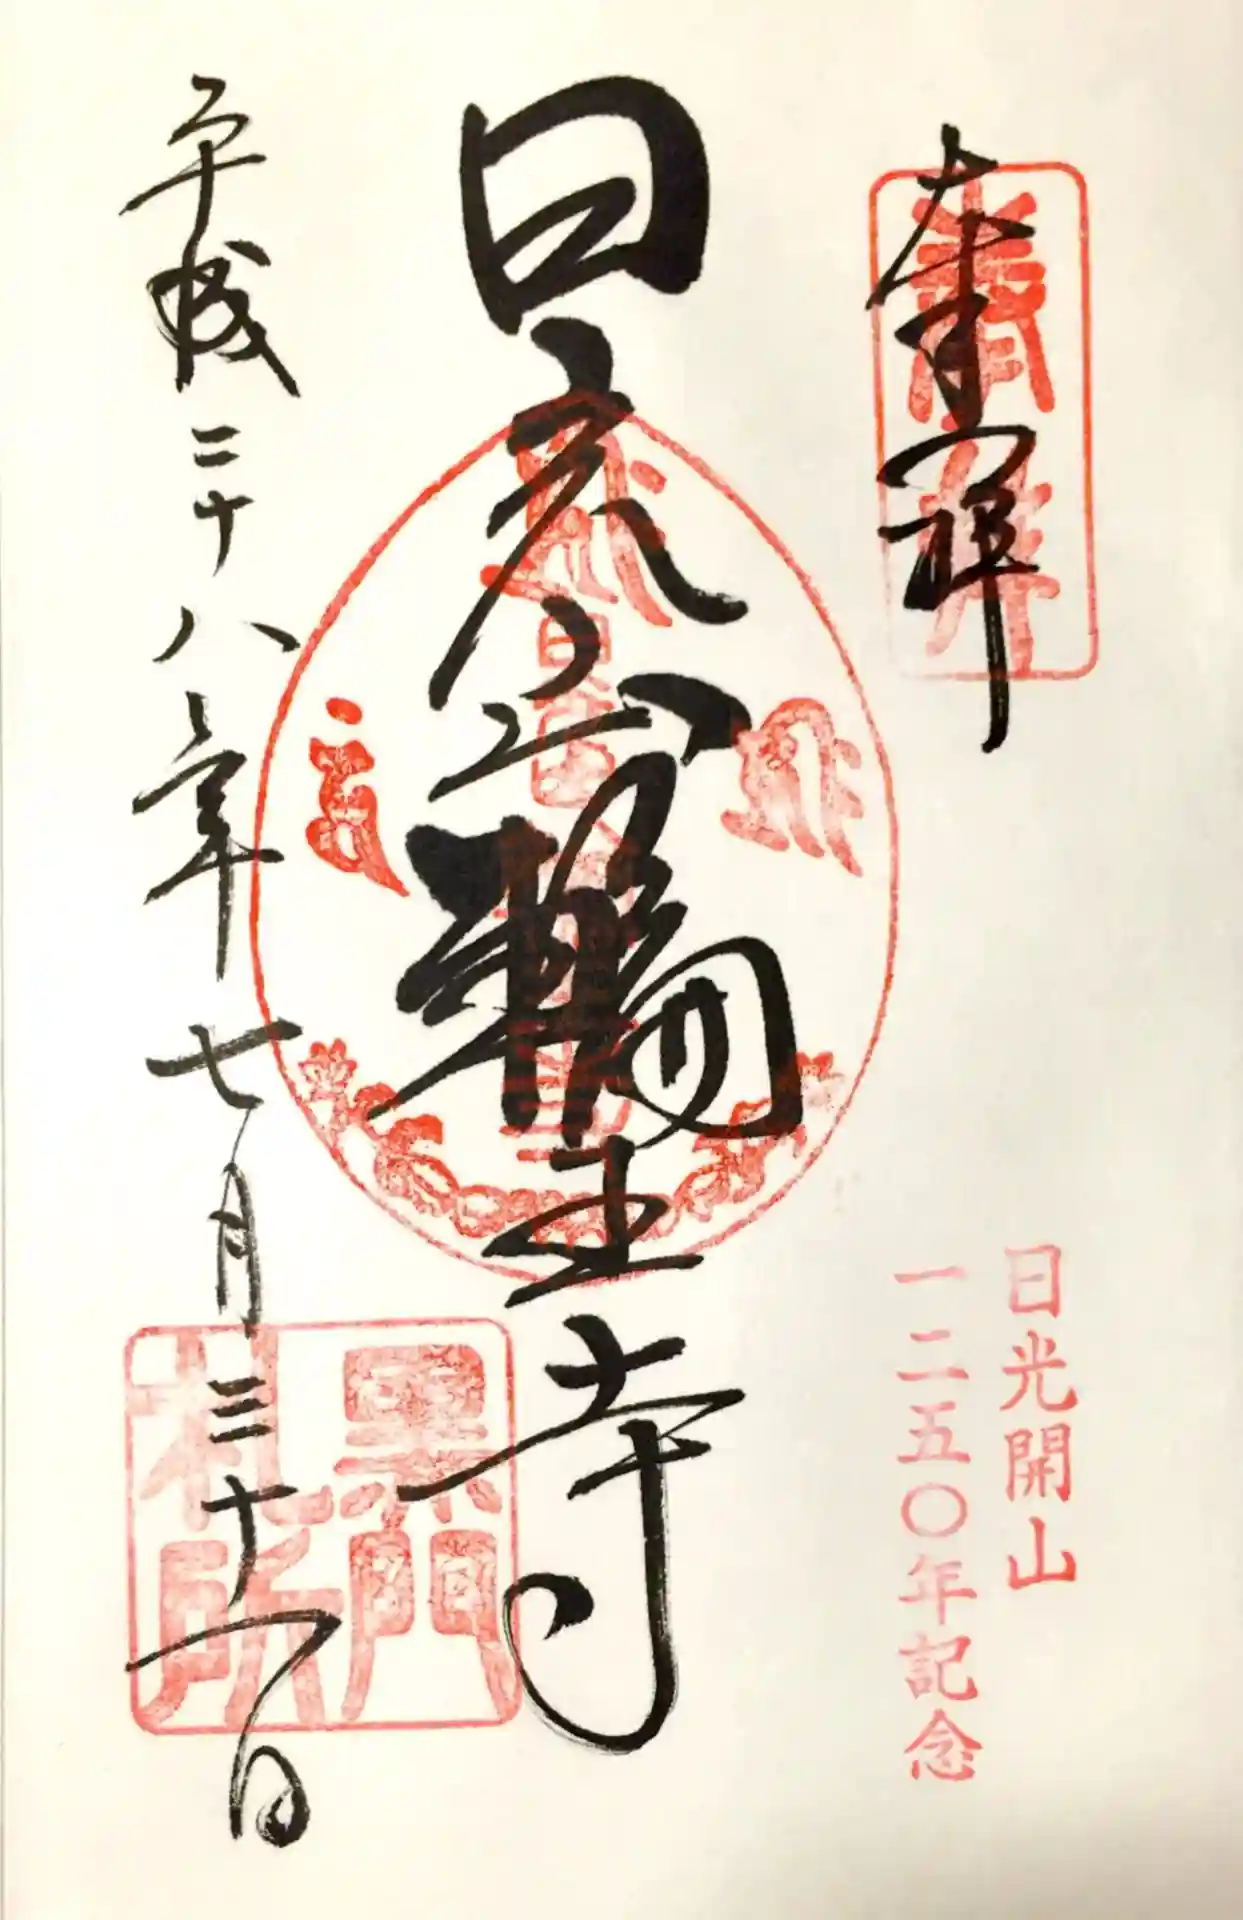 奉拝
奉拝
日光開山
一二五〇年記念
日光山輪王寺
黒門
札所
平成二十八年七月三十一日